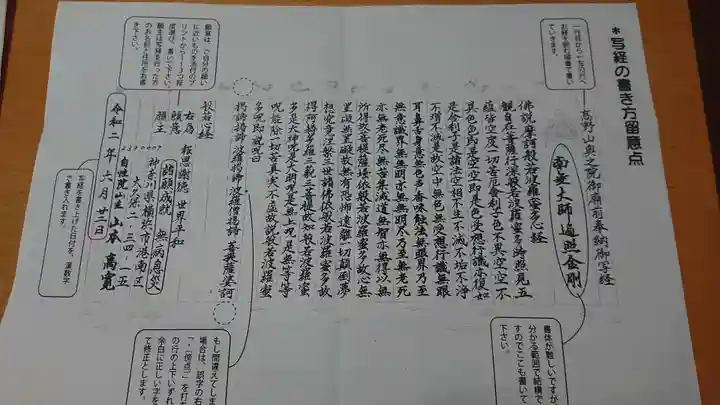 *写経の書き方留意点
一行目から一生の方へ
お経を読む順番で書い
ていきます。
高野山奥之院御廟前奉納御写経
南無大師遍照金剛
佛説摩訶般若波羅蜜多心経
観自在菩薩行深般若波羅蜜多時照見五
蘊皆空度一切苦厄舎利子色不異空空不
異色色即是空空即是色受想行識亦復如
是舎利子是諸法空相不生不滅不垢不浄
不増不減是故空中無色無受想行識無眼
耳鼻舌身意無色声香味触法無眼界乃至
無意識界無無明亦無無明尽乃至無老死
亦無老死尽無苦集滅道無智亦無得以無
所得故菩提薩埵依般若波羅蜜多故心無
罣礙無罣礙故無有恐怖遠離一切顛倒夢
想究竟涅槃三世諸佛依般若波羅蜜多故
得阿耨多羅三藐三菩提故知般若波羅蜜
多是大神呪是大明呪是無上呪是無等等
呪能除一切苦真実不虚故説般若波羅蜜
多呪即説呪曰
羯諦羯諦 波羅羯諦 波羅僧羯諦 菩提薩婆訶
般若心経
右為 報恩謝徳 世界平和
願意 諸願成就 無病息災
願主 神奈川県横浜市港南区
大久保二、三四、一五
自性院山主 山本 高寛
令和二年六月廿二日
願意は、ご自分の願い
に近いものを添付のプ
リントから1~3つ程
度選び、書いて下さい。
願主は写経を行った方
のお名前と住所をお書
き下さい。
写経を書き上げた日付を、漢数字
で書き入れます。
書体が難しいですが
分かる範囲で結構で
すのでここも書いて
もし間違えてしま
場合は、誤字の右
「、(傍点)」を打ち
の行の上下いずれ
余白に正しい字を
て修正とします。